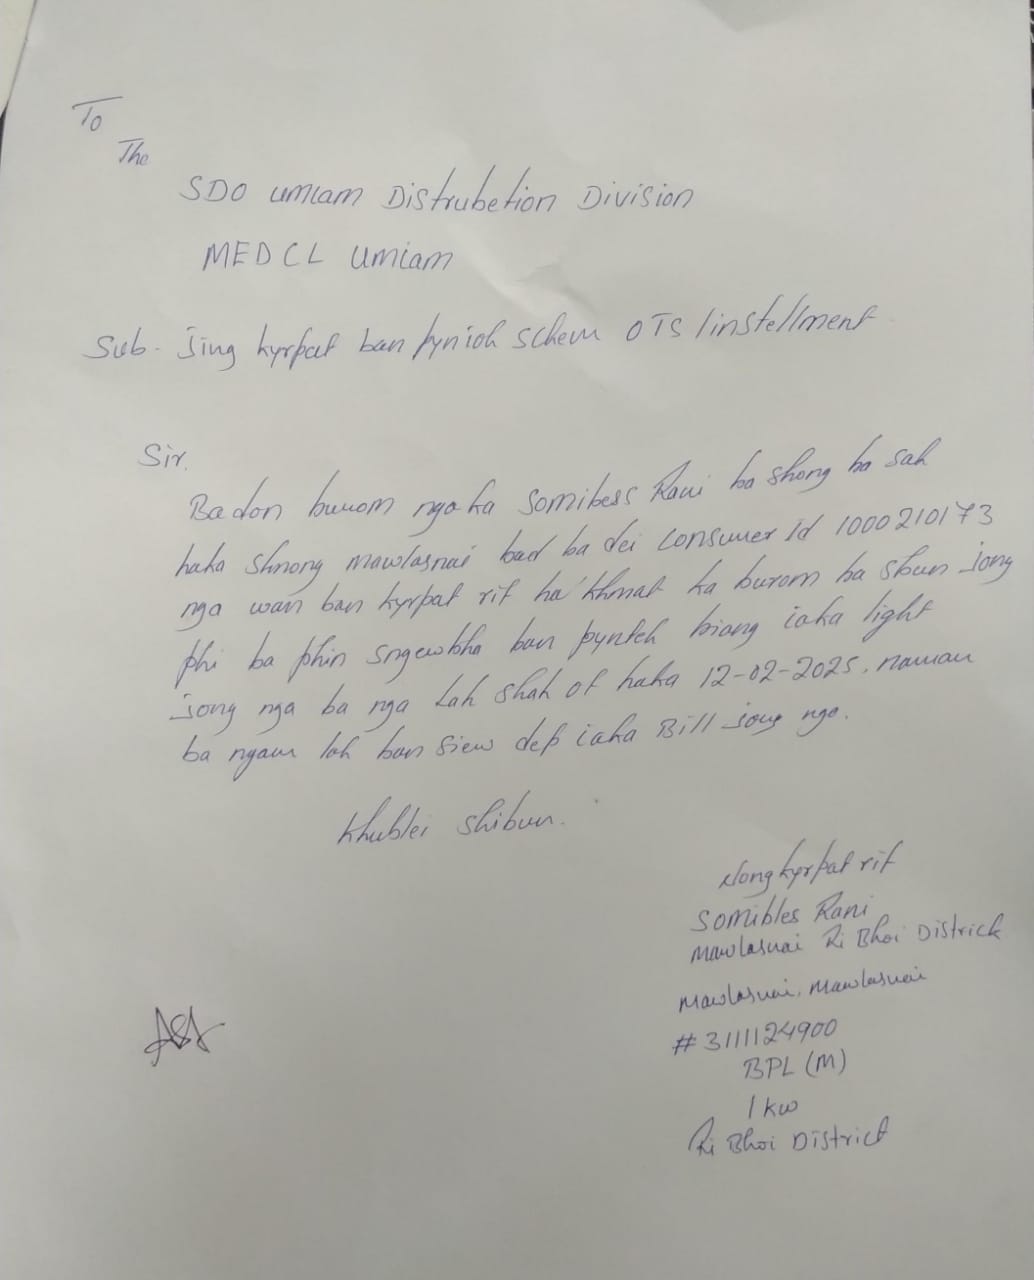 To
The
SDO umiam Distrubetion Division
MEDCL Umiam
Sub - Jing kyrpat ban pynioh schem OTS / instellment
Sir.
Badon burom nga ka Somibess Rani ba shong ba sah
haka Shnong Mawlasnai bad ba dei consumer id 1000210173
nga wan ban kyrpat rit ha khmat ka burom ba shun jong
phi ba phin sngewbha ban pynteh biang iaka light
jong nga ba nga Lah shah of haka 12-02-2025. namar
ba ngam lah ban siew dep iaka Bill jong nga.
Khublei Shibun.
Nongkyrpat rit
Somibles Rani
Mawlasnai Ri Bhoi Districk
Mawlasnai, Mawlasnai
# 3111124900
BPL (M)
1 kw
Ri Bhoi District